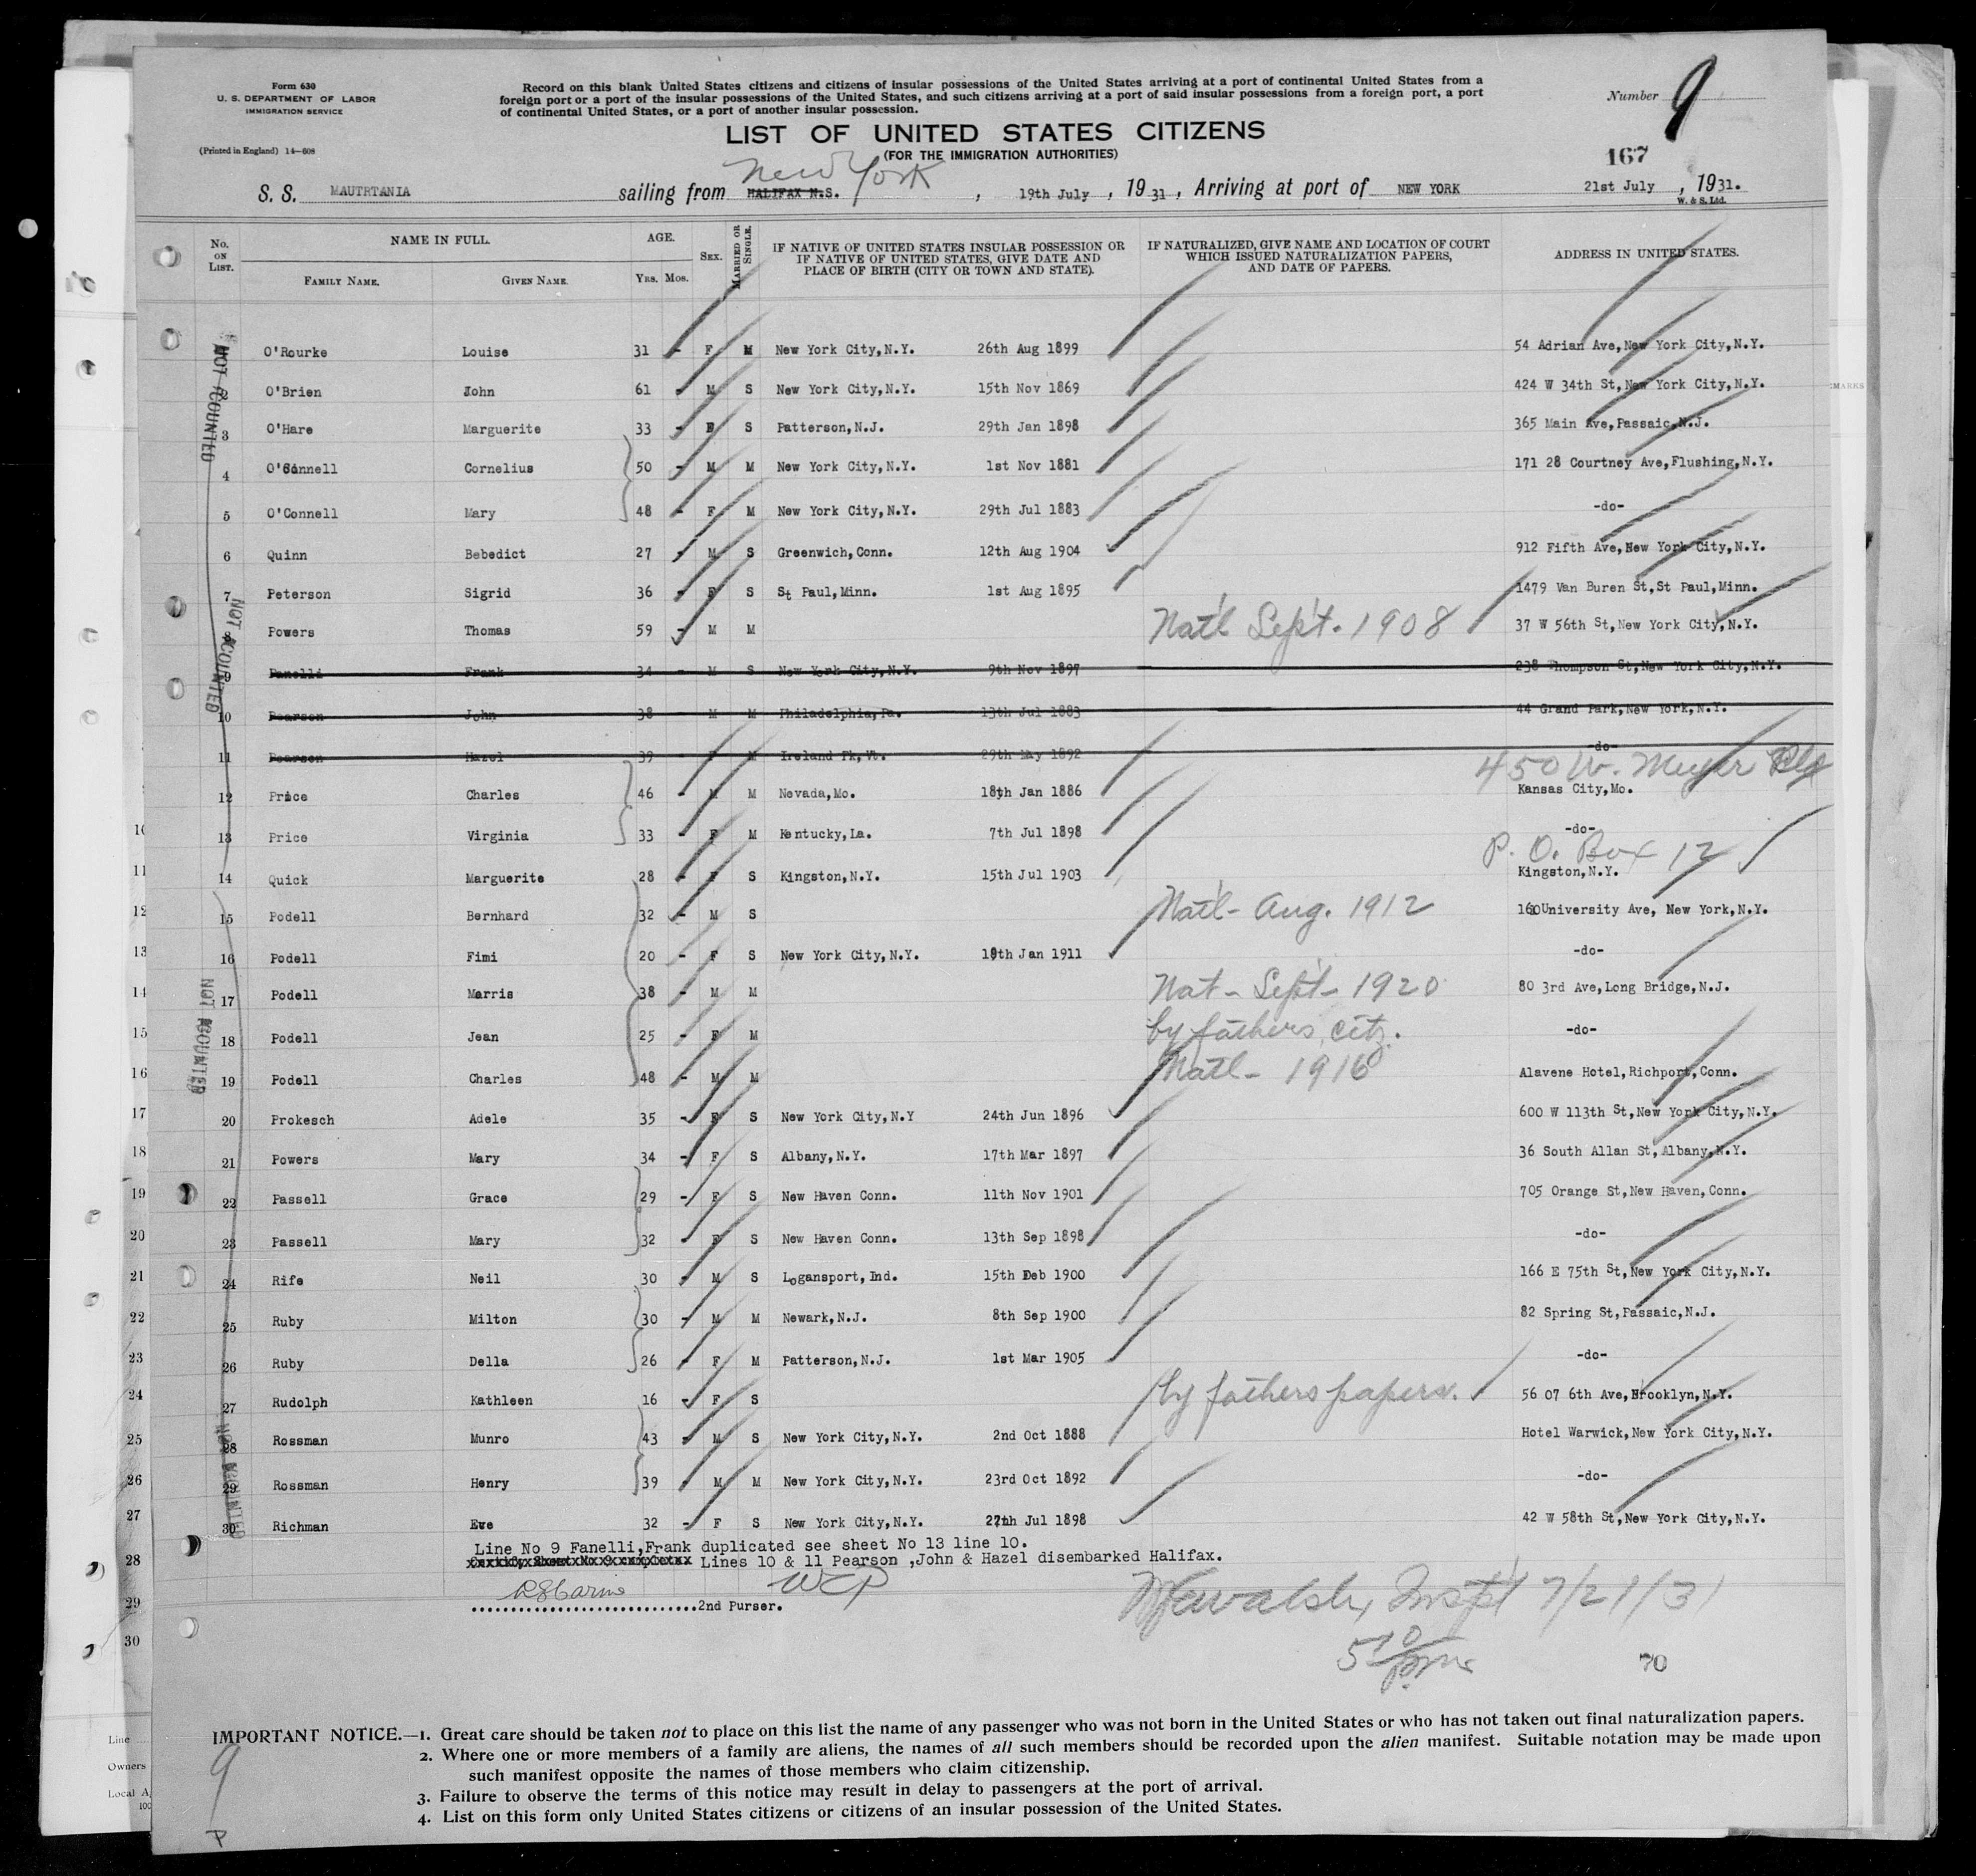 Form 630
U. S. DEPARTMENT OF LABOR
IMMIGRATION SERVICE
(Printed in England) 14—608
Record on this blank United States citizens and citizens of insular possessions of the United States arriving at a port of continental United States from a
foreign port or a port of the insular possessions of the United States, and such citizens arriving at a port of said insular possessions from a foreign port, a port
of continental United States, or a port of another insular possession.
Number 9
LIST OF UNITED STATES CITIZENS
(FOR THE IMMIGRATION AUTHORITIES)
167
New York
S. S. MAUTRTANIA sailing from HALIFAX N.S. , 19th July , 19 31 , Arriving at port of NEW YORK 21st July , 19 31.
W. & S. Ltd.
No. ON LIST. NAME IN FULL. FAMILY NAME. GIVEN NAME. AGE. YRS. MOS. SEX. MARRIED OR SINGLE. IF NATIVE OF UNITED STATES INSULAR POSSESSION OR IF NATIVE OF UNITED STATES, GIVE DATE AND PLACE OF BIRTH (CITY OR TOWN AND STATE). IF NATURALIZED, GIVE NAME AND LOCATION OF COURT WHICH ISSUED NATURALIZATION PAPERS, AND DATE OF PAPERS. ADDRESS IN UNITED STATES.
O'Rourke Louise 31 - F M New York City,N.Y. 26th Aug 1899 54 Adrian Ave,New York City,N.Y.
2 O'Brien John 61 - M S New York City,N.Y. 15th Nov 1869 424 W 34th St,New York City,N.Y.
3 O'Hare Marguerite 33 - F S Patterson,N.J. 29th Jan 1898 365 Main Ave,Passaic,N.J.
4 O'Connell Cornelius 50 - M M New York City,N.Y. 1st Nov 1881 171 28 Courtney Ave,Flushing,N.Y.
5 O'Connell Mary 48 - F M New York City,N.Y. 29th Jul 1883 -do-
6 Quinn Bebedict 27 - M S Greenwich,Conn. 12th Aug 1904 912 Fifth Ave,New York City,N.Y.
7 Peterson Sigrid 36 - F S St Paul,Minn. 1st Aug 1895 1479 Van Buren St,St Paul,Minn.
8 Powers Thomas 59 - M M Nat'l Sept. 1908 37 W 56th St,New York City,N.Y.
9 Fanelli Frank 34 - M S New York City,N.Y. 9th Nov 1897 238 Thompson St,New York City,N.Y.
10 Pearson John 38 - M M Philadelphia,Pa. 13th Jul 1883 44 Grand Park,New York,N.Y.
11 Pearson Hazel 39 - F M Ireland Pk,Vt. 29th May 1892 -do-
450 W. Meyer Blv
12 Price Charles 46 - M M Nevada,Mo. 18th Jan 1886 Kansas City,Mo.
13 Price Virginia 33 - F M Kentucky,La. 7th Jul 1898 -do-
P. O. Box 12
14 Quick Marguerite 28 - F S Kingston,N.Y. 15th Jul 1903 Kingston,N.Y.
15 Podell Bernhard 32 - M S Nat'l - Aug. 1912 160 University Ave, New York,N.Y.
16 Podell Fimi 20 - F S New York City,N.Y. 18th Jan 1911 -do-
17 Podell Marris 38 - M M Nat - Sept - 1920 80 3rd Ave,Long Bridge,N.J.
18 Podell Jean 25 - F M by fathers citz. -do-
19 Podell Charles 48 - M M Natl - 1916 Alavene Hotel,Richport,Conn.
20 Prokesch Adele 35 - F S New York City,N.Y 24th Jun 1896 600 W 113th St,New York City,N.Y.
21 Powers Mary 34 - F S Albany,N.Y. 17th Mar 1897 36 South Allan St,Albany,N.Y.
22 Passell Grace 29 - F S New Haven Conn. 11th Nov 1901 705 Orange St,New Haven,Conn.
23 Passell Mary 32 - F S New Haven Conn. 13th Sep 1898 -do-
24 Rife Neil 30 - M S Logansport,Ind. 15th Deb 1900 166 E 75th St,New York City,N.Y.
25 Ruby Milton 30 - M M Newark,N.J. 8th Sep 1900 82 Spring St,Passaic,N.J.
26 Ruby Della 26 - F M Patterson,N.J. 1st Mar 1905 -do-
27 Rudolph Kathleen 16 - F S by fathers papers. 56 07 6th Ave,Brooklyn,N.Y.
28 Rossman Munro 43 - M S New York City,N.Y. 2nd Oct 1888 Hotel Warwick,New York City,N.Y.
29 Rossman Henry 39 - M M New York City,N.Y. 23rd Oct 1892 -do-
30 Richman Eve 32 - F S New York City,N.Y. 27th Jul 1898 42 W 58th St,New York City,N.Y.
NOT COUNTED
NOT COUNTED
NOT COUNTED
NOT COUNTED
Line No 9 Fanelli,Frank duplicated see sheet No 13 line 10.
Lines 10 & 11 Pearson ,John & Hazel disembarked Halifax.
WCP
2nd Purser.
Walsh, Inspt 7/21/31
5 10 pm
70
IMPORTANT NOTICE.—1. Great care should be taken not to place on this list the name of any passenger who was not born in the United States or who has not taken out final naturalization papers.
2. Where one or more members of a family are aliens, the names of all such members should be recorded upon the alien manifest. Suitable notation may be made upon
such manifest opposite the names of those members who claim citizenship.
3. Failure to observe the terms of this notice may result in delay to passengers at the port of arrival.
4. List on this form only United States citizens or citizens of an insular possession of the United States.
9
P
10
11
12
13
14
15
16
17
18
19
20
21
22
23
24
25
26
27
28
29
30
Line
Owners
Local A